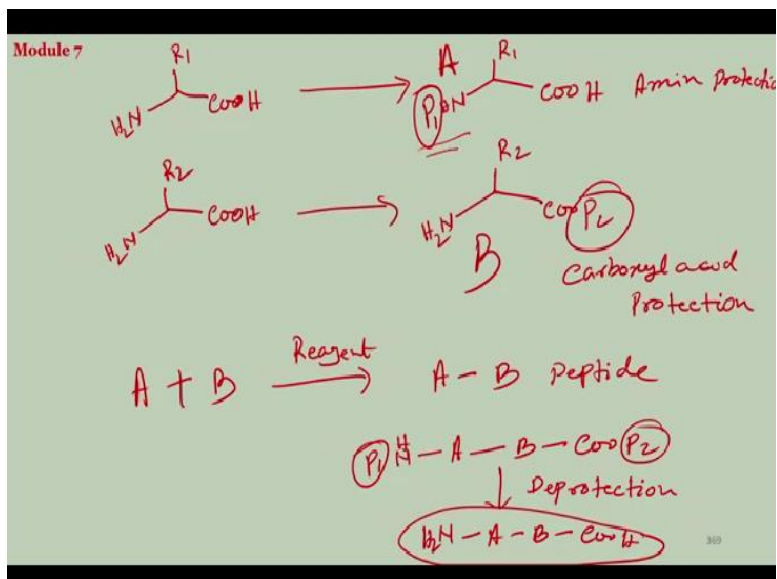 Module 7
R1
H2N COOH
A
R1
P1 HN COOH Amin Protectio
R2
H2N COOH
R2
H2N COO P2
B
Carboxyl acid
Protection
A + B Reagent A - B Peptide
P1 H N - A - B - COO P2
Deprotection
H2N - A - B - COOH
369